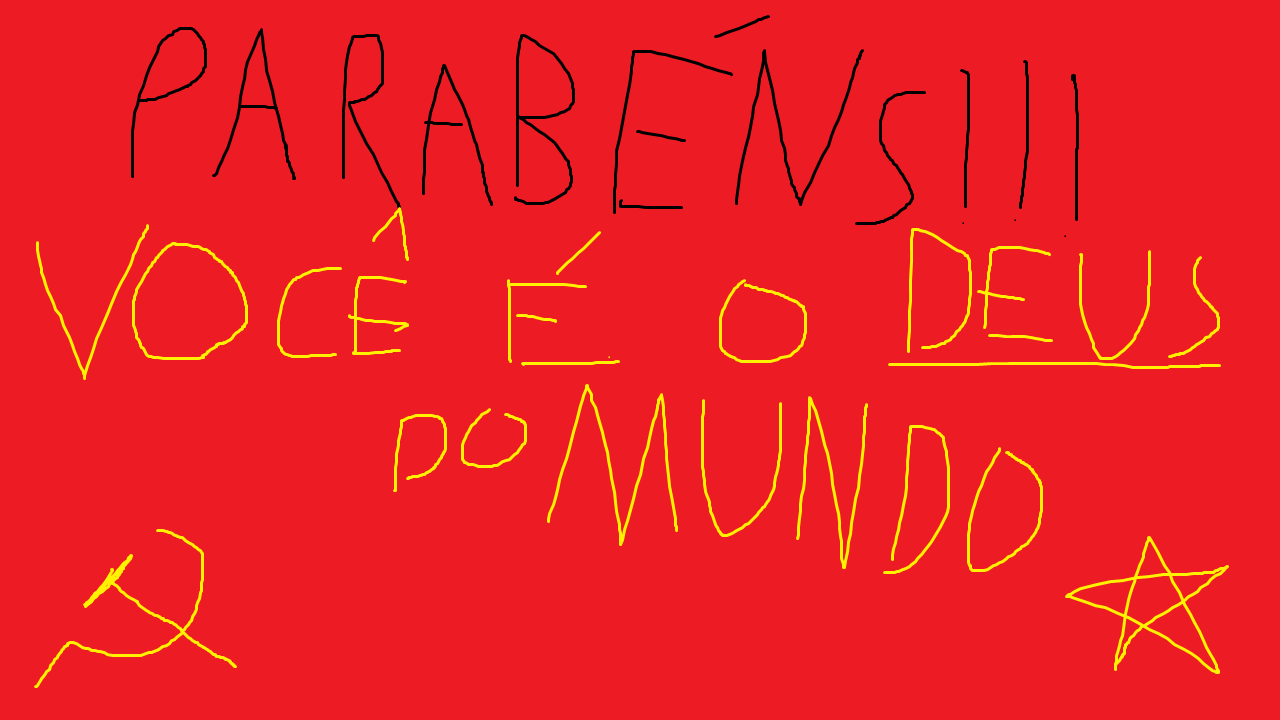 PARABÉNS!!!
VOCÊ É O DEUS
DO MUNDO